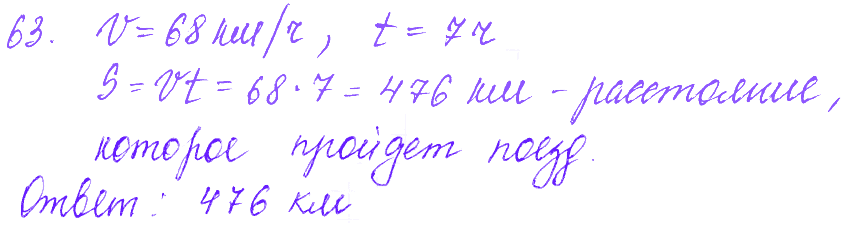 63. V = 68 км/ч, t = 7 ч
S = Vt = 68 · 7 = 476 км - расстояние,
которое пройдет поезд.
Ответ: 476 км